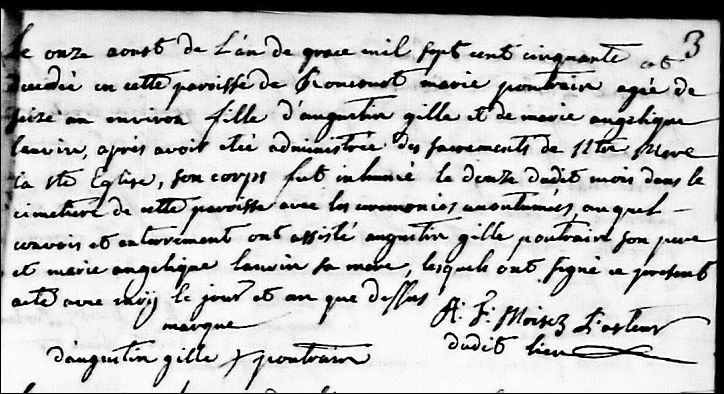 3
Le onze aoust de L'an de grace mil sept cent cinquante est
decedée en cette paroisse de marie poutrain agée de
seize an environ fille d'augustin gille et de marie angelique
lauvin, apres avoir etée administrée des sacrements de
la ste Eglise, son corps fut inhumé le douze dudit mois dans le
cimetiere de cette paroisse avec les ceremonies accoutumées, auquel
convois et enterrement ont assisté augustin gille poutrain son pere
et marie angelique lauvin sa mere, lesquels ont signé ce present
acte avec moy le jour et an que dessus
marque
d'augustin gille + poutrain
A: F: Moisez Pasteur
dudit lieu